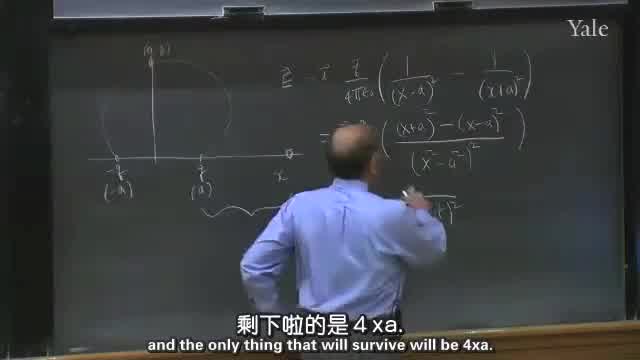 Yale
(0, b)
E = i q/4πε₀ ( 1/(x-a)² - 1/(x+a)² )
= ( (x+a)² - (x-a)² / (x² - a²)² )
-q q x
(-a) (a)
)²
剩下啦的是4xa.
and the only thing that will survive will be 4xa.